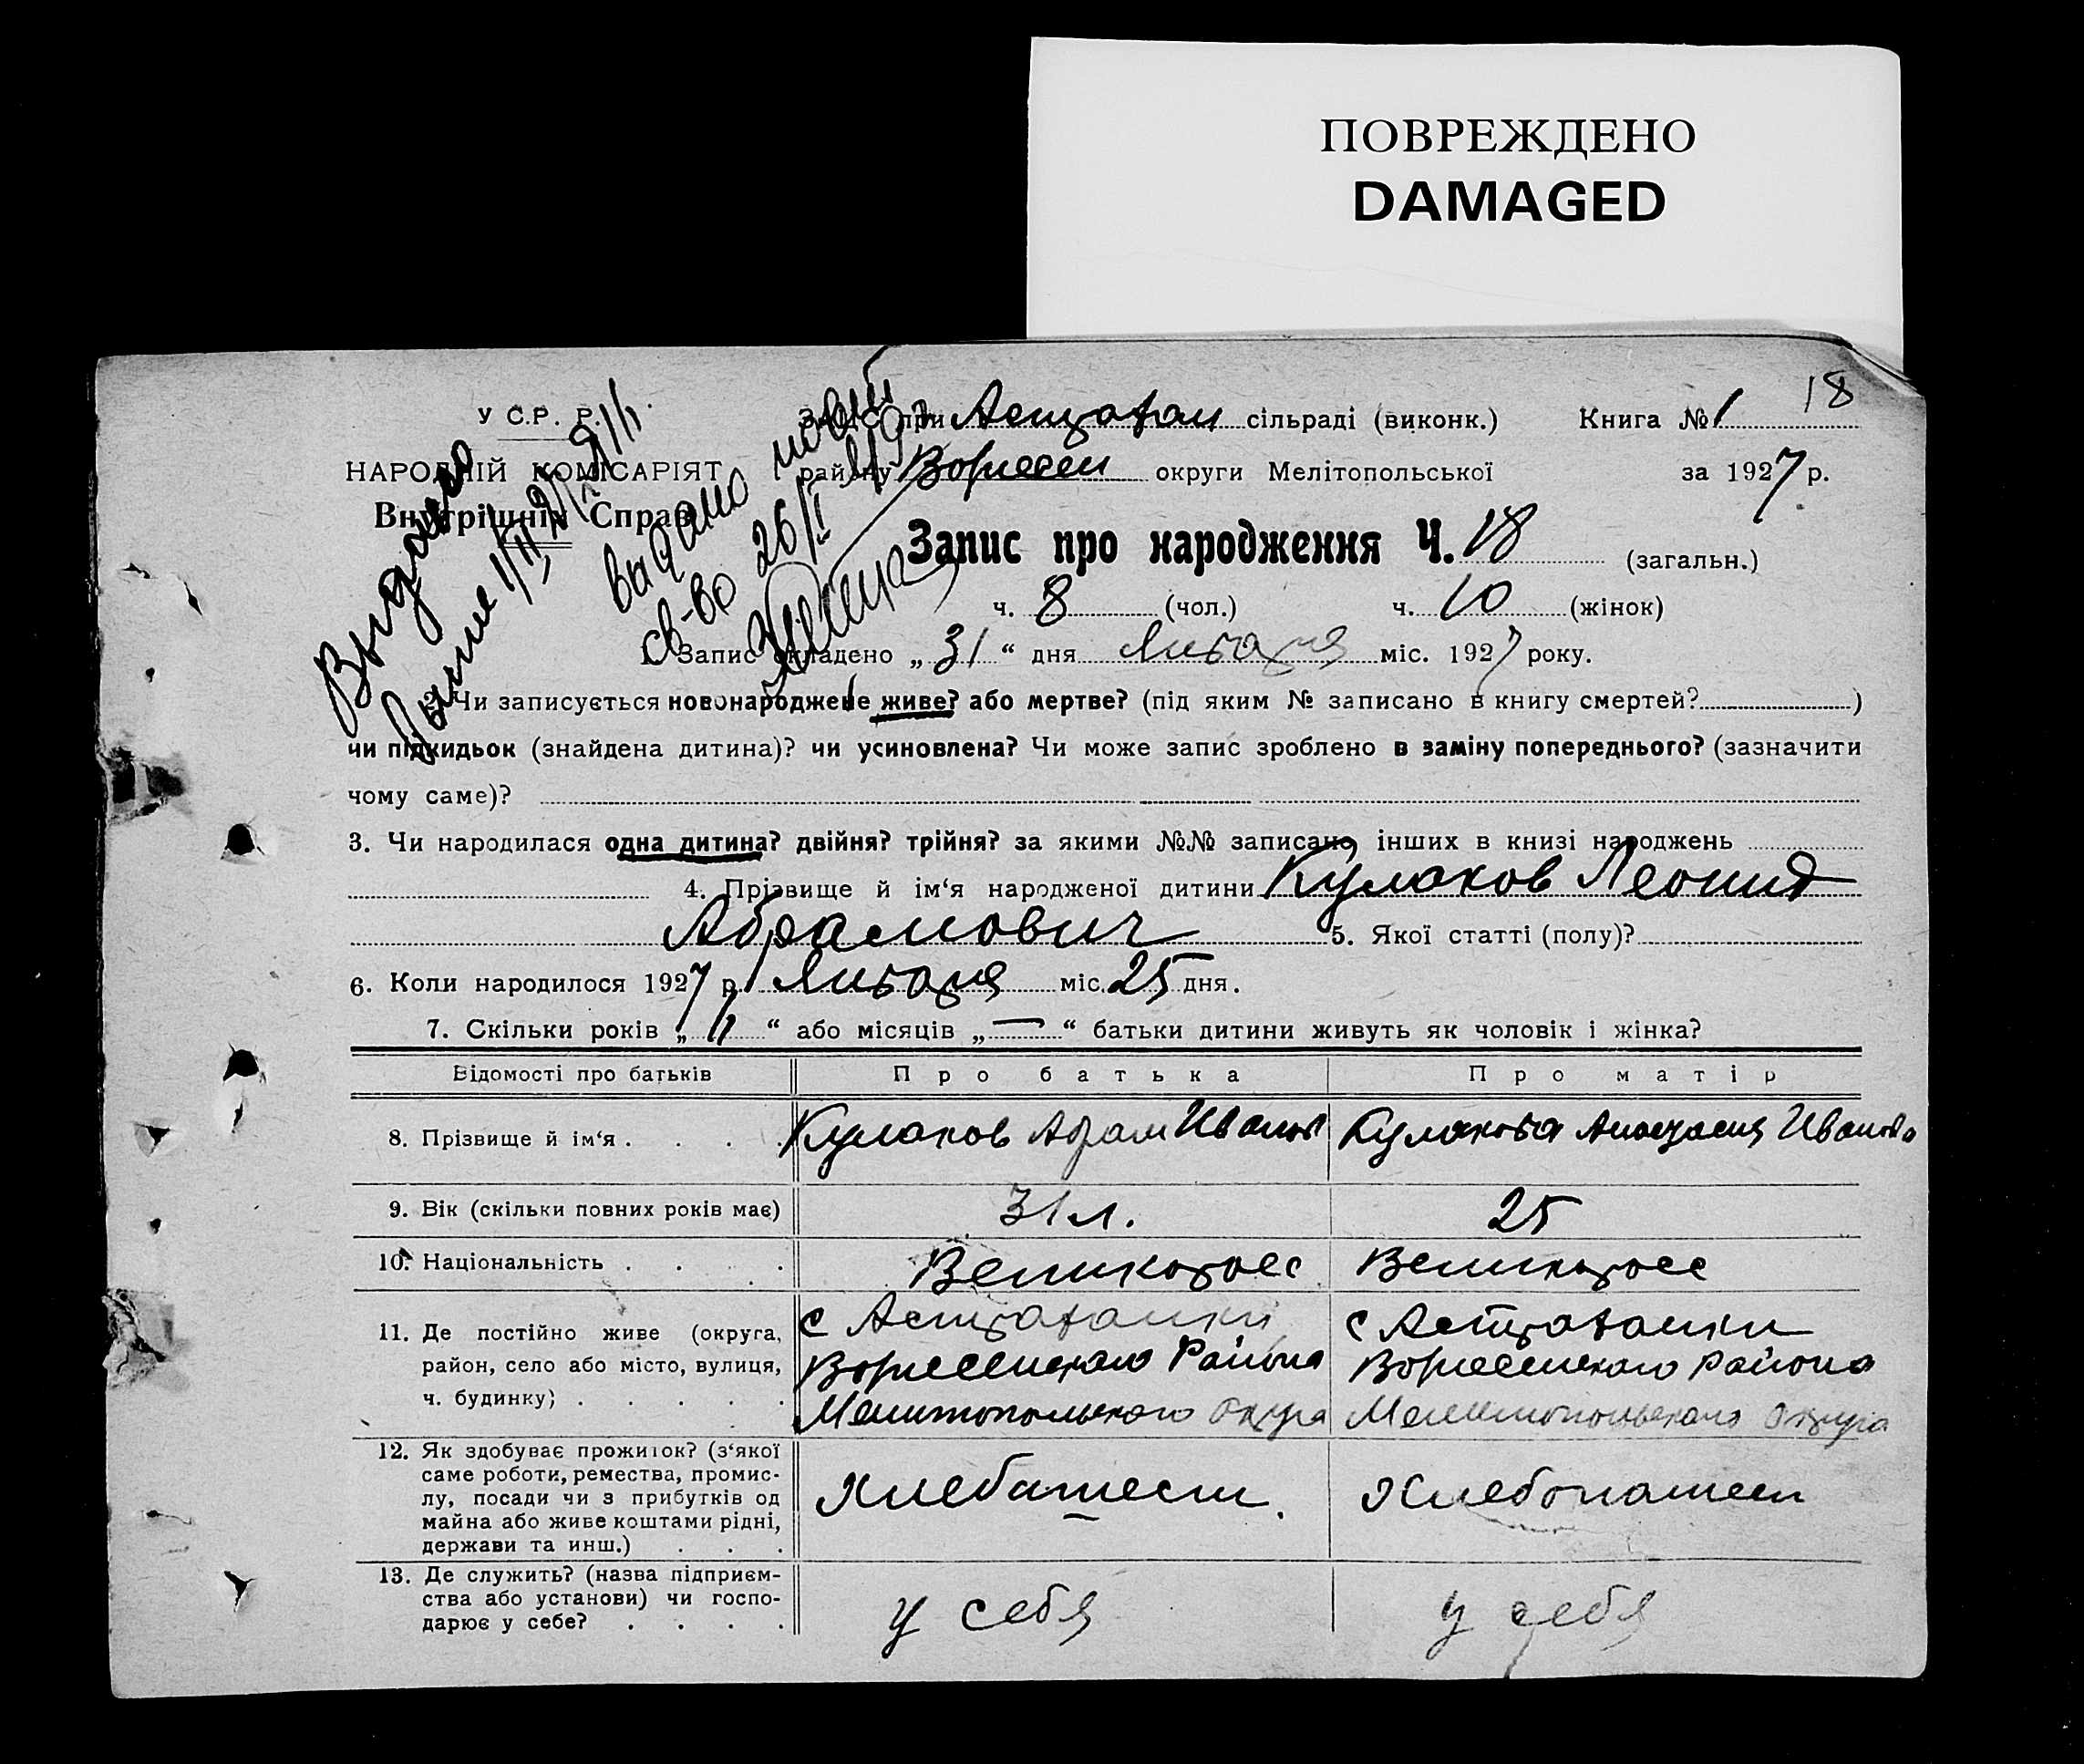 ПОВРЕЖДЕНО
DAMAGED
18
У С.Р. Р.
НАРОДНІЙ КОМІСАРІЯТ
Внутрішніх Справ
ЗАГС при Астрахан сільраді (виконк.) Книга № 1
району округи Мелітопольської за 1927 р.
Видано
видано
св-во 26/I
Запис про народження Ч. 18 (загальн.)
ч. 8 (чол.) ч. 10 (жінок)
1. Запис складено „31“ дня Января міс. 1927 року.
2. Чи записується новонароджене живе? або мертве? (під яким № записано в книгу смертей? )
чи підкидьок (знайдена дитина)? чи усиновлена? Чи може запис зроблено в заміну попереднього? (зазначити
чому саме)?
3. Чи народилася одна дитина? двійня? трійня? за якими №№ записано інших в книзі народжень
4. Прізвище й ім‘я народженої дитини Кулаков Леонид
Абрамович 5. Якої статті (полу)?
6. Коли народилося 1927 р. Января міс. 25 дня.
7. Скільки років „11“ або місяців „—“ батьки дитини живуть як чоловік і жінка?
Відомості про батьків Про батька Про матір
8. Прізвище й ім‘я . . . . Кулаков Абрам Иванов Кулакова Анастасия Иванова
9. Вік (скільки повних років має) 31 л. 25
10. Національність . . . . Великоросс Великоросс
11. Де постійно живе (округа, с Астраханки с Астраханки
район, село або місто, вулиця, Района Района
ч. будинку) . . . . . Мелитопольского Округа Мелитопольского Округа
12. Як здобуває прожиток? (з‘якої
саме роботи, ремества, промис-
лу, посади чи з прибутків од Хлебопашест
майна або живе коштами рідні,
держави та инш.) . . .
13. Де служить? (назва підприєм-
ства або установи) чи госпо- у себя у себя
дарює у себе? . . . .